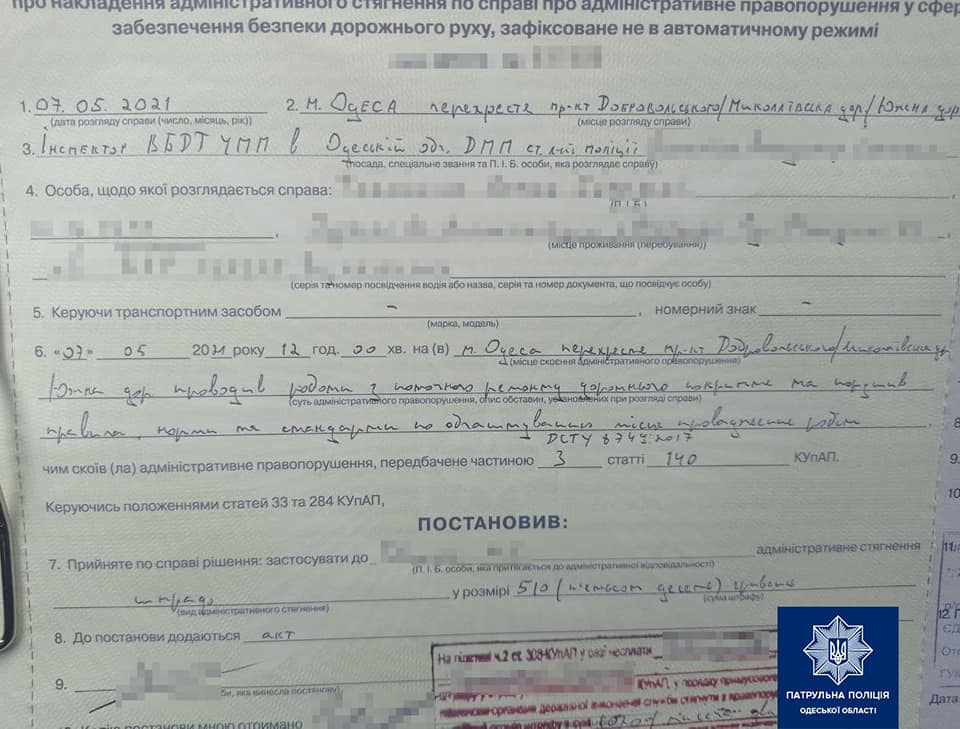 про накладення адміністративного стягнення по справі про адміністративне правопорушення у сфер
забезпечення безпеки дорожнього руху, зафіксоване не в автоматичному режимі
1. 07. 05. 2021 2. М. Одеса перехрестя пр-кт Добровольського/Миколаївська дор/Южна дор
(дата розгляду справи (число, місяць, рік)) (місце розгляду справи)
3. Інспектор ВБДТ УПП в Одеській обл. ДПП ст. л-й поліції
(посада, спеціальне звання та П. І. Б. особи, яка розглядає справу)
4. Особа, щодо якої розглядається справа:
(П.І.Б.)
(місце проживання (перебування))
(серія та номер посвідчення водія або назва, серія та номер документа, що посвідчує особу)
5. Керуючи транспортним засобом – , номерний знак –
(марка, модель)
6. «07» 05 2021 року 12 год. 00 хв. на(в) м. Одеса перехрестя пр-кт Добровольського/Миколаївська др
(місце скоєння адміністративного правопорушення)
Южна дор проводив роботи з поточного ремонту дорожнього покриття та порушив
(суть адміністративного правопорушення, опис обставин, установлених при розгляді справи)
правила, норми та стандарти по облаштуванню місця провадження робіт
ДСТУ 8749:2017
чим скоїв (ла) адміністративне правопорушення, передбачене частиною 3 статті 140 КУпАП.
Керуючись положеннями статей 33 та 284 КУпАП,
ПОСТАНОВИВ:
7. Прийняте по справі рішення: застосувати до адміністративне стягнення
(П. І. Б. особи, яка притягається до адміністративної відповідальності)
штраф у розмірі 510 (п'ятсот десять) гривень
(вид адміністративного стягнення) (сума штрафу)
8. До постанови додаються акт
9.
би, яка винесла постанову)
постанови мною отримано
На підставі ч.2 ст. 308 КУпАП у разі несплати
КУпАП, у порядку примусового
органом державної виконавчої служби стягнути з
8
9.
10
11.
12. П
Дата
ПАТРУЛЬНА ПОЛІЦІЯ
ОДЕСЬКОЇ ОБЛАСТІ